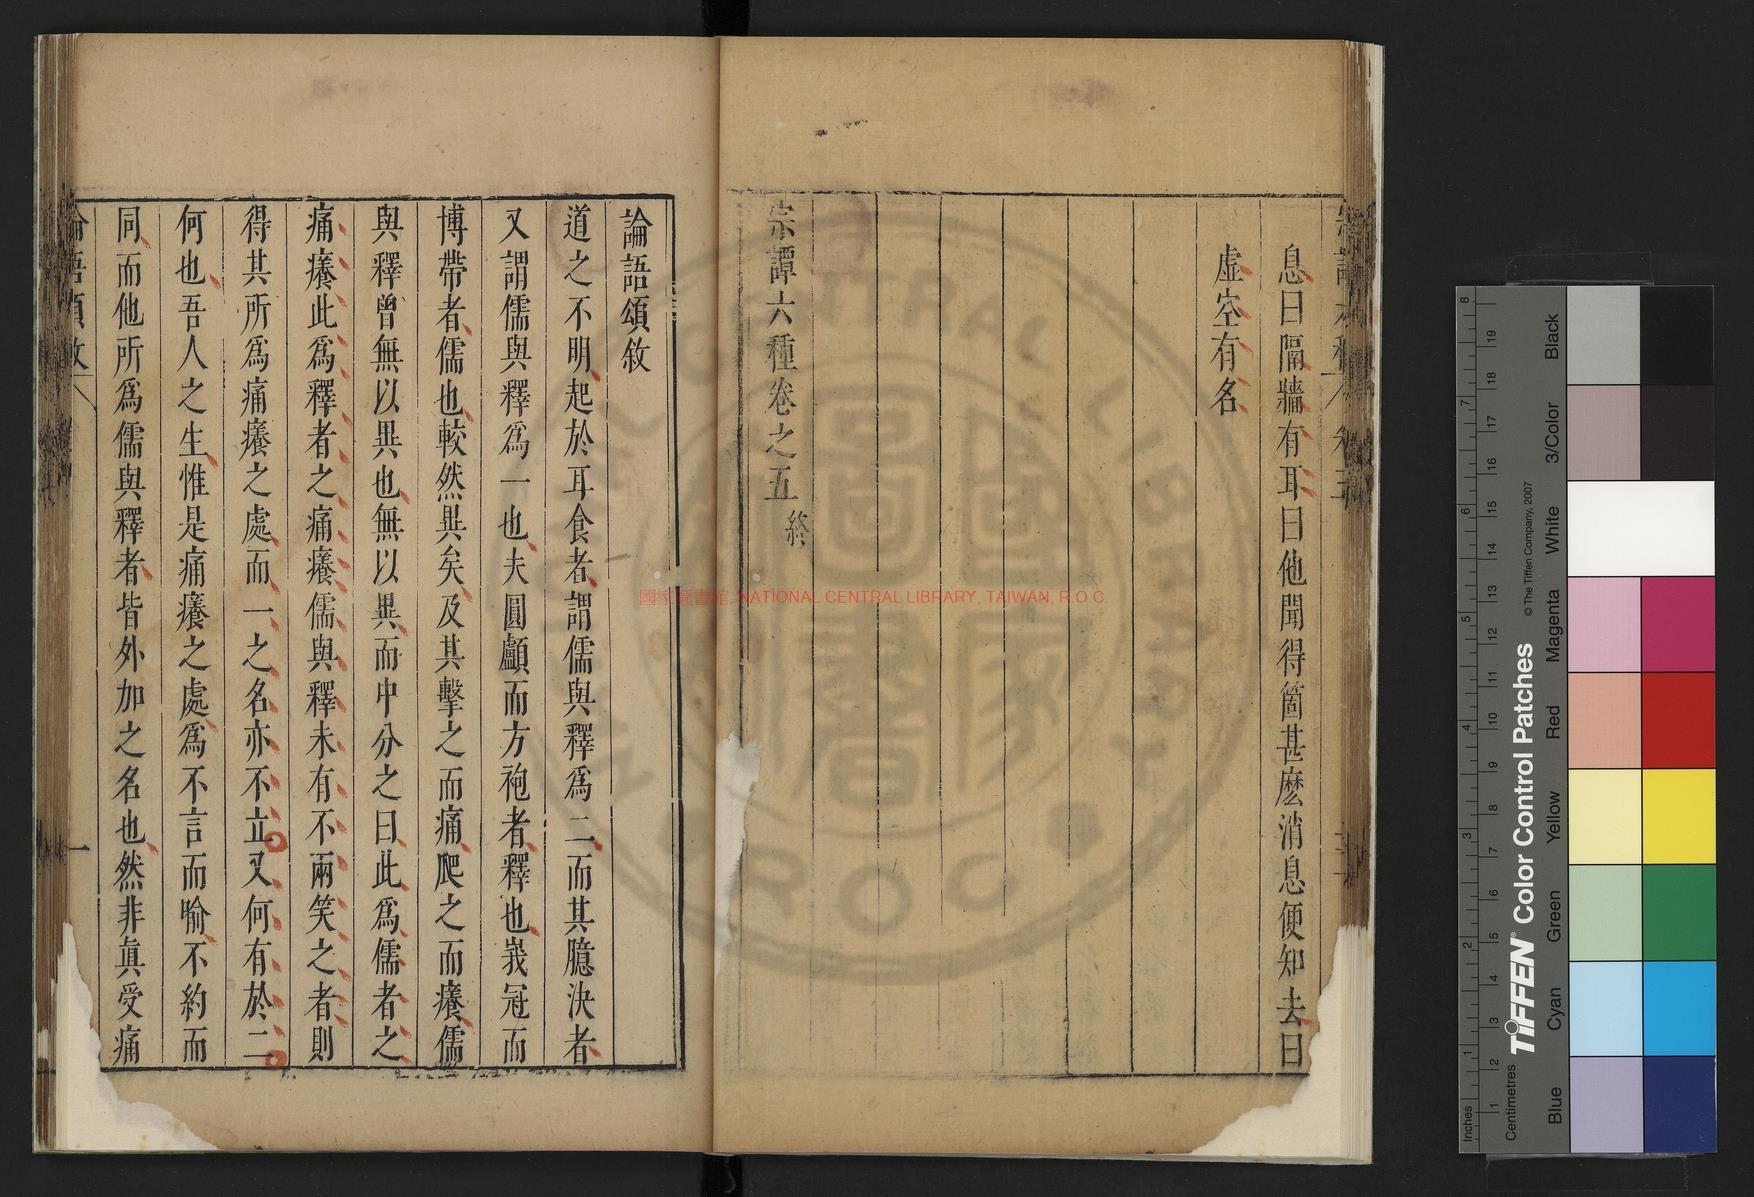 息曰隔牆有耳曰他聞得箇甚麽消息便知去曰
虛空有名
宗譚六種卷之五終
論語頌敘
道之不明起於耳食者謂儒與釋爲二而其臆決者
又謂儒與釋爲一也夫圓顱而方袍者釋也峩冠而
博帶者儒也較然異矣及其擊之而痛爬之而癢儒
與釋曾無以異也無以異而中分之曰此爲儒者之
痛癢此爲釋者之痛癢儒與釋未有不兩笑之者則
得其所爲痛癢之處而一之名亦不立又何有於二
何也吾人之生惟是痛癢之處爲不言而喻不約而
同而他所爲儒與釋者皆外加之名也然非真受痛
論語頌敘
一
國家圖書館, NATIONAL CENTRAL LIBRARY, TAIWAN, R.O.C.
TIFFEN® Color Control Patches
© The Tiffen Company, 2007
Inches
1 2 3 4 5 6 7 8
Centimetres
1 2 3 4 5 6 7 8 9 10 11 12 13 14 15 16 17 18 19
Blue
Cyan
Green
Yellow
Red
Magenta
White
3/Color
Black